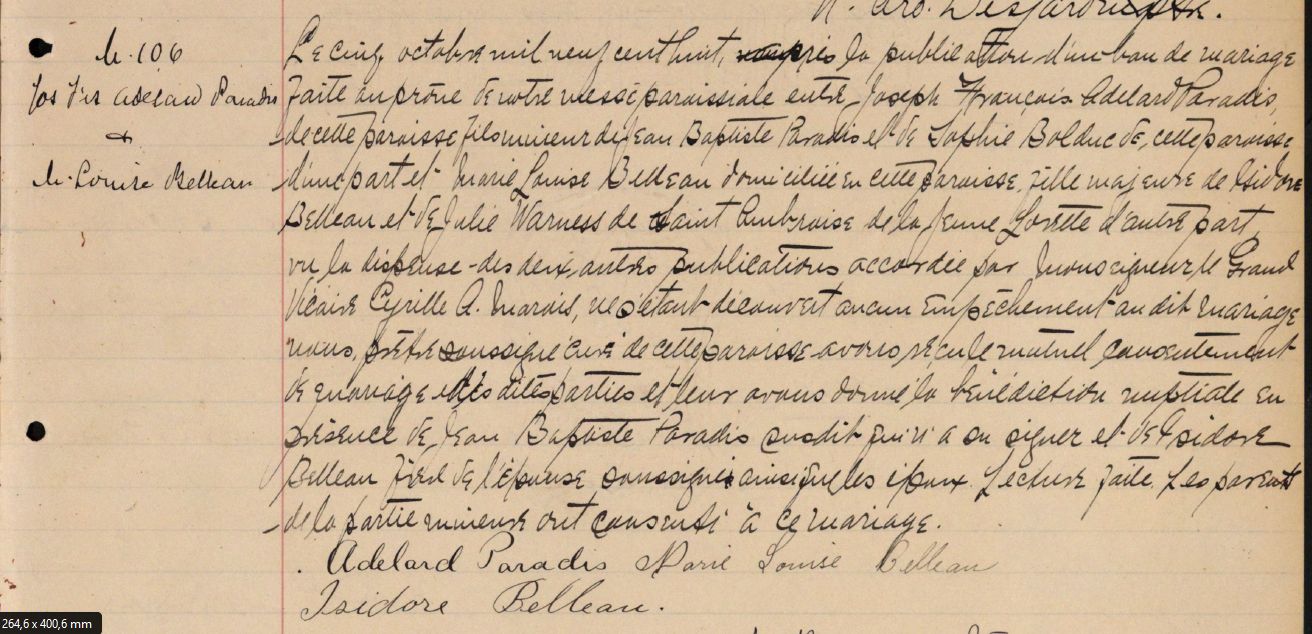 N. Ard. Desjardins ptre.
M. 106
Jos Frs Adelard Paradis
&
M. Louise Belleau
Le cinq octobre mil neuf cent huit, après la publication d'un ban de mariage
faite au prône de notre messe paroissiale entre Joseph François Adelard Paradis,
de cette paroisse fils mineur de Jean Baptiste Paradis et de Sophie Bolduc de cette paroisse
d'une part et Marie Louise Belleau domiciliée en cette paroisse, fille majeure de Isidore
Belleau et de Julie Warness de Saint Ambroise de la Jeune Lorette d'autre part,
vu la dispense des deux autres publications accordée par Monseigneur le Grand
Vicaire Cyrille A. Marois, ne s'étant découvert aucun empêchement au dit mariage
nous, prêtre soussigné curé de cette paroisse avons reçu le mutuel consentement
de mariage des dites parties et leur avons donné la bénédiction nuptiale en
présence de Jean Baptiste Paradis susdit qui n'a su signer et de Isidore
Belleau père de l'épouse soussigné ainsi que les époux. Lecture faite. Les parents
de la partie mineure ont consenti à ce mariage.
Adelard Paradis Marie Louise Belleau
Isidore Belleau.
264,6 x 400,6 mm